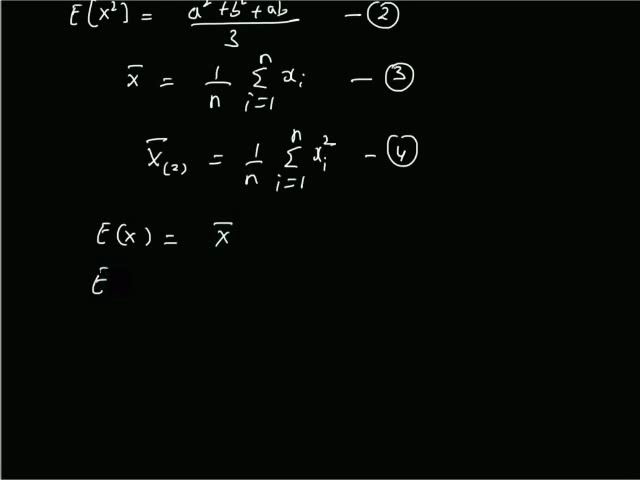 E[x²] = a²+b²+ab / 3 — ②
x̄ = 1/n ∑ᵢ₌₁ⁿ xᵢ — ③
x̄₍₂₎ = 1/n ∑ᵢ₌₁ⁿ xᵢ² — ④
E(x) = x̄
E